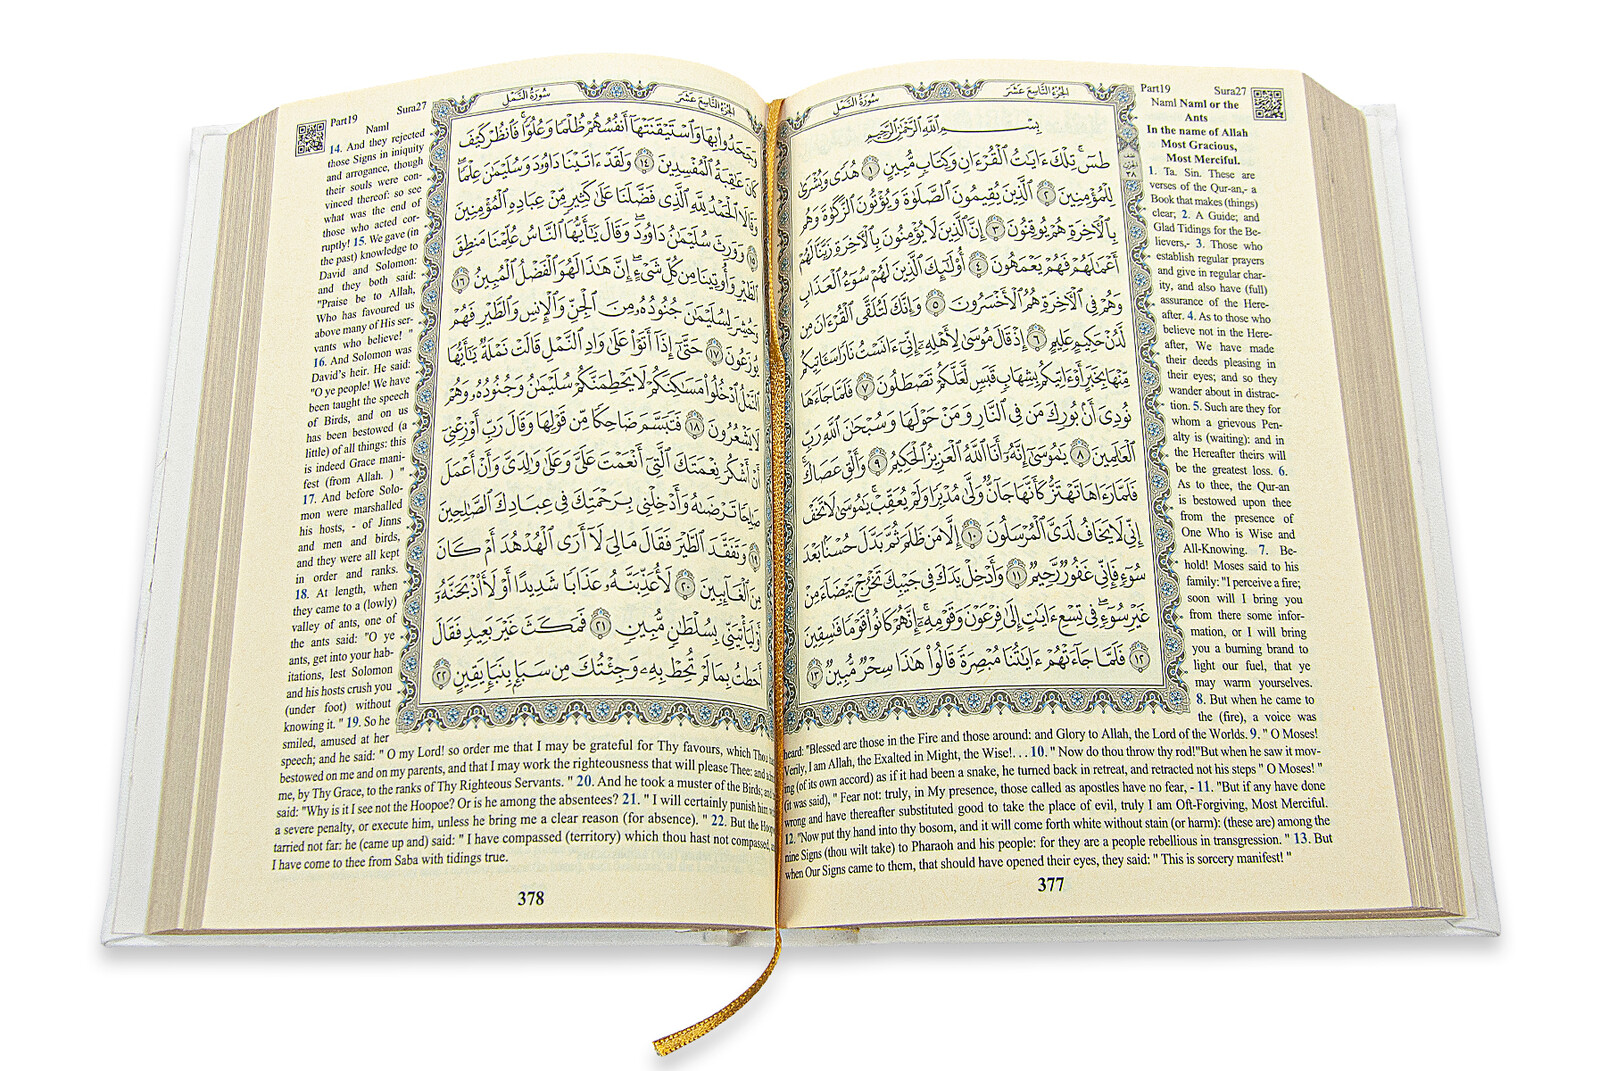 الجزء التاسع عشر
سورة النمل
بِسْمِ ٱللَّهِ ٱلرَّحْمَٰنِ ٱلرَّحِيمِ
طسٓ ۚ تِلْكَ ءَايَٰتُ ٱلْقُرْءَانِ وَكِتَابٍ مُّبِينٍ ١ هُدًى وَبُشْرَىٰ
لِلْمُؤْمِنِينَ ٢ ٱلَّذِينَ يُقِيمُونَ ٱلصَّلَوٰةَ وَيُؤْتُونَ ٱلزَّكَوٰةَ وَهُم
بِٱلْءَاخِرَةِ هُمْ يُوقِنُونَ ٣ إِنَّ ٱلَّذِينَ لَا يُؤْمِنُونَ بِٱلْءَاخِرَةِ زَيَّنَّا لَهُمْ
أَعْمَٰلَهُمْ فَهُمْ يَعْمَهُونَ ٤ أُو۟لَٰٓئِكَ ٱلَّذِينَ لَهُمْ سُوٓءُ ٱلْعَذَابِ
وَهُمْ فِى ٱلْءَاخِرَةِ هُمُ ٱلْأَخْسَرُونَ ٥ وَإِنَّكَ لَتُلَقَّى ٱلْقُرْءَانَ مِن
لَّدُنْ حَكِيمٍ عَلِيمٍ ٦ إِذْ قَالَ مُوسَىٰ لِأَهْلِهِۦٓ إِنِّىٓ ءَانَسْتُ نَارًا سَـَٔاتِيكُم
مِّنْهَا بِخَبَرٍ أَوْ ءَاتِيكُم بِشِهَابٍ قَبَسٍ لَّعَلَّكُمْ تَصْطَلُونَ ٧ فَلَمَّا جَآءَهَا
نُودِىَ أَنۢ بُورِكَ مَن فِى ٱلنَّارِ وَمَنْ حَوْلَهَا وَسُبْحَٰنَ ٱللَّهِ رَبِّ
ٱلْعَٰلَمِينَ ٨ يَٰمُوسَىٰٓ إِنَّهُۥٓ أَنَا ٱللَّهُ ٱلْعَزِيزُ ٱلْحَكِيمُ ٩ وَأَلْقِ عَصَاكَ ۚ
فَلَمَّا رَءَاهَا تَهْتَزُّ كَأَنَّهَا جَآنٌّ وَلَّىٰ مُدْبِرًا وَلَمْ يُعَقِّبْ ۚ يَٰمُوسَىٰ لَا تَخَفْ
إِنِّى لَا يَخَافُ لَدَىَّ ٱلْمُرْسَلُونَ ١٠ إِلَّا مَن ظَلَمَ ثُمَّ بَدَّلَ حُسْنًۢا بَعْدَ
سُوٓءٍ فَإِنِّى غَفُورٌ رَّحِيمٌ ١١ وَأَدْخِلْ يَدَكَ فِى جَيْبِكَ تَخْرُجْ بَيْضَآءَ مِنْ
غَيْرِ سُوٓءٍ ۖ فِى تِسْعِ ءَايَٰتٍ إِلَىٰ فِرْعَوْنَ وَقَوْمِهِۦٓ ۚ إِنَّهُمْ كَانُوا۟ قَوْمًا فَٰسِقِينَ
١٢ فَلَمَّا جَآءَتْهُمْ ءَايَٰتُنَا مُبْصِرَةً قَالُوا۟ هَٰذَا سِحْرٌ مُّبِينٌ ١٣
Part19 Sura27
Naml Naml or the
Ants
In the name of Allah
Most Gracious,
Most Merciful.
1. Ta. Sin. These are
verses of the Qur-an,- a
Book that makes (things)
clear; 2. A Guide; and
Glad Tidings for the Be-
lievers,- 3. Those who
establish regular prayers
and give in regular char-
ity, and also have (full)
assurance of the Here-
after. 4. As to those who
believe not in the Here-
after, We have made
their deeds pleasing in
their eyes; and so they
wander about in distrac-
tion. 5. Such are they for
whom a grievous Pen-
alty is (waiting): and in
the Hereafter theirs will
be the greatest loss. 6.
As to thee, the Qur-an
is bestowed upon thee
from the presence of
One Who is Wise and
All-Knowing. 7. Be-
hold! Moses said to his
family: "I perceive a fire;
soon will I bring you
from there some infor-
mation, or I will bring
you a burning brand to
light our fuel, that ye
may warm yourselves.
8. But when he came to
the (fire), a voice was
heard: "Blessed are those in the Fire and those around: and Glory to Allah, the Lord of the Worlds. 9. " O Moses!
Verily, I am Allah, the Exalted in Might, the Wise!. . . 10. " Now do thou throw thy rod!"But when he saw it mov-
ing (of its own accord) as if it had been a snake, he turned back in retreat, and retracted not his steps " O Moses! "
(it was said), " Fear not: truly, in My presence, those called as apostles have no fear, - 11. "But if any have done
wrong and have thereafter substituted good to take the place of evil, truly I am Oft-Forgiving, Most Merciful.
12. "Now put thy hand into thy bosom, and it will come forth white without stain (or harm): (these are) among the
nine Signs (thou wilt take) to Pharaoh and his people: for they are a people rebellious in transgression. " 13. But
when Our Signs came to them, that should have opened their eyes, they said: " This is sorcery manifest! "
377
الجزء التاسع عشر
سورة النمل
وَجَحَدُوا۟ بِهَا وَٱسْتَيْقَنَتْهَآ أَنفُسُهُمْ ظُلْمًا وَعُلُوًّا ۚ فَٱنظُرْ كَيْفَ
كَانَ عَٰقِبَةُ ٱلْمُفْسِدِينَ ١٤ وَلَقَدْ ءَاتَيْنَا دَاوُۥدَ وَسُلَيْمَٰنَ عِلْمًا ۖ
وَقَالَا ٱلْحَمْدُ لِلَّهِ ٱلَّذِى فَضَّلَنَا عَلَىٰ كَثِيرٍ مِّنْ عِبَادِهِ ٱلْمُؤْمِنِينَ
١٥ وَوَرِثَ سُلَيْمَٰنُ دَاوُۥدَ ۖ وَقَالَ يَٰٓأَيُّهَا ٱلنَّاسُ عُلِّمْنَا مَنطِقَ
ٱلطَّيْرِ وَأُوتِينَا مِن كُلِّ شَىْءٍ ۖ إِنَّ هَٰذَا لَهُوَ ٱلْفَضْلُ ٱلْمُبِينُ ١٦
وَحُشِرَ لِسُلَيْمَٰنَ جُنُودُهُۥ مِنَ ٱلْجِنِّ وَٱلْإِنسِ وَٱلطَّيْرِ فَهُمْ
يُوزَعُونَ ١٧ حَتَّىٰٓ إِذَآ أَتَوْا۟ عَلَىٰ وَادِ ٱلنَّمْلِ قَالَتْ نَمْلَةٌ يَٰٓأَيُّهَا
ٱلنَّمْلُ ٱدْخُلُوا۟ مَسَٰكِنَكُمْ لَا يَحْطِمَنَّكُمْ سُلَيْمَٰنُ وَجُنُودُهُۥ وَهُمْ
لَا يَشْعُرُونَ ١٨ فَتَبَسَّمَ ضَاحِكًا مِّن قَوْلِهَا وَقَالَ رَبِّ أَوْزِعْنِىٓ
أَنْ أَشْكُرَ نِعْمَتَكَ ٱلَّتِىٓ أَنْعَمْتَ عَلَىَّ وَعَلَىٰ وَٰلِدَىَّ وَأَنْ أَعْمَلَ
صَٰلِحًا تَرْضَىٰهُ وَأَدْخِلْنِى بِرَحْمَتِكَ فِى عِبَادِكَ ٱلصَّٰلِحِينَ
١٩ وَتَفَقَّدَ ٱلطَّيْرَ فَقَالَ مَا لِىَ لَآ أَرَى ٱلْهُدْهُدَ أَمْ كَانَ
مِنَ ٱلْغَآئِبِينَ ٢٠ لَأُعَذِّبَنَّهُۥ عَذَابًا شَدِيدًا أَوْ لَأَا۟ذْبَحَنَّهُۥٓ
أَوْ لَيَأْتِيَنِّى بِسُلْطَٰنٍ مُّبِينٍ ٢١ فَمَكَثَ غَيْرَ بَعِيدٍ فَقَالَ
أَحَطتُ بِمَا لَمْ تُحِطْ بِهِۦ وَجِئْتُكَ مِن سَبَإٍۭ بِنَبَإٍ يَقِينٍ ٢٢
Part19 Sura27
Naml
14. And they rejected
those Signs in iniquity
and arrogance, though
their souls were con-
vinced thereof: so see
what was the end of
those who acted cor-
ruptly! 15. We gave (in
the past) knowledge to
David and Solomon:
and they both said:
"Praise be to Allah,
Who has favoured us
above many of His ser-
vants who believe! "
16. And Solomon was
David's heir. He said:
"O ye people! We have
been taught the speech
of Birds, and on us
has been bestowed (a
little) of all things: this
is indeed Grace mani-
fest (from Allah. ) "
17. And before Solo-
mon were marshalled
his hosts, - of Jinns
and men and birds,
and they were all kept
in order and ranks.
18. At length, when
they came to a (lowly)
valley of ants, one of
the ants said: "O ye
ants, get into your hab-
itations, lest Solomon
and his hosts crush you
(under foot) without
knowing it. " 19. So he
smiled, amused at her
speech; and he said: " O my Lord! so order me that I may be grateful for Thy favours, which Thou
bestowed on me and on my parents, and that I may work the righteousness that will please Thee: and
me, by Thy Grace, to the ranks of Thy Righteous Servants. " 20. And he took a muster of the Birds; and
said: "Why is it I see not the Hoopoe? Or is he among the absentees? 21. " I will certainly punish him
a severe penalty, or execute him, unless he bring me a clear reason (for absence). " 22. But the
tarried not far: he (came up and) said: " I have compassed (territory) which thou hast not compassed,
I have come to thee from Saba with tidings true.
378